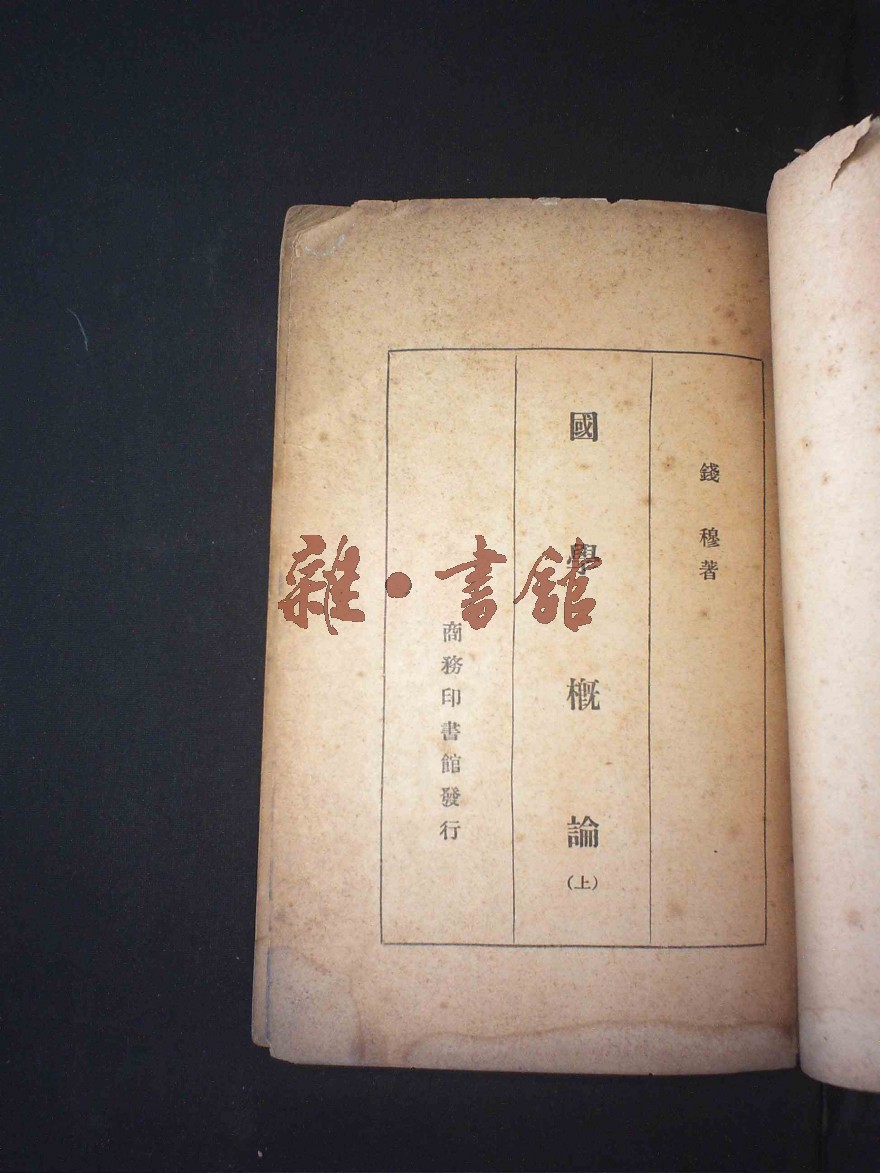 錢穆著
國學槪論
(上)
商務印書館發行
雜·書館